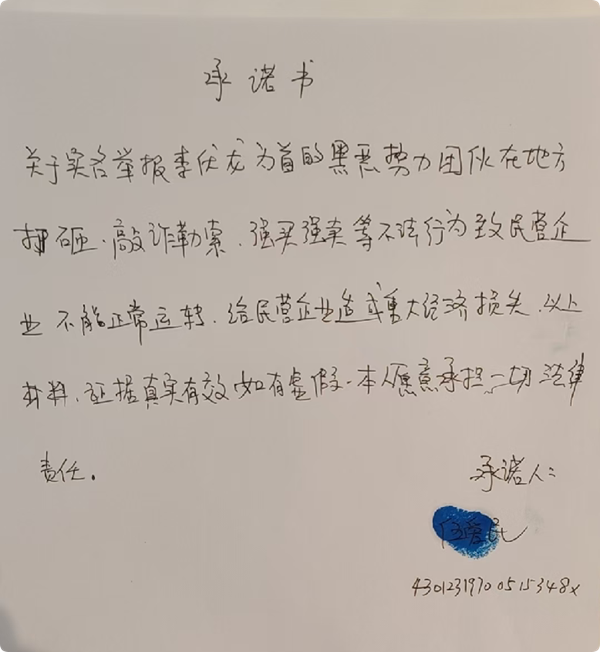 承诺书
关于实名举报李伏龙为首的黑恶势力团伙在地方
打砸、敲诈勒索、强买强卖等不法行为致民营企
业不能正常运转、给民营企业造成重大经济损失、以上
材料、证据真实有效如有虚假、本人愿意承担一切法律
责任.
承诺人:
民
43012319700515348x